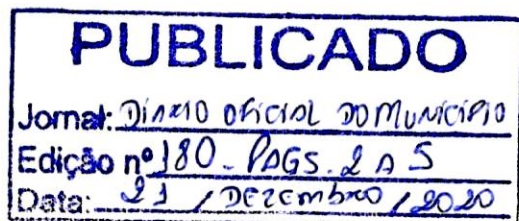 PUBLICADO
Jornal: DIÁRIO OFICIAL DO MUNICÍPIO
Edição nº 180 - PAGS. 2 A 5
Data: 21 / DEZEMBRO / 2020